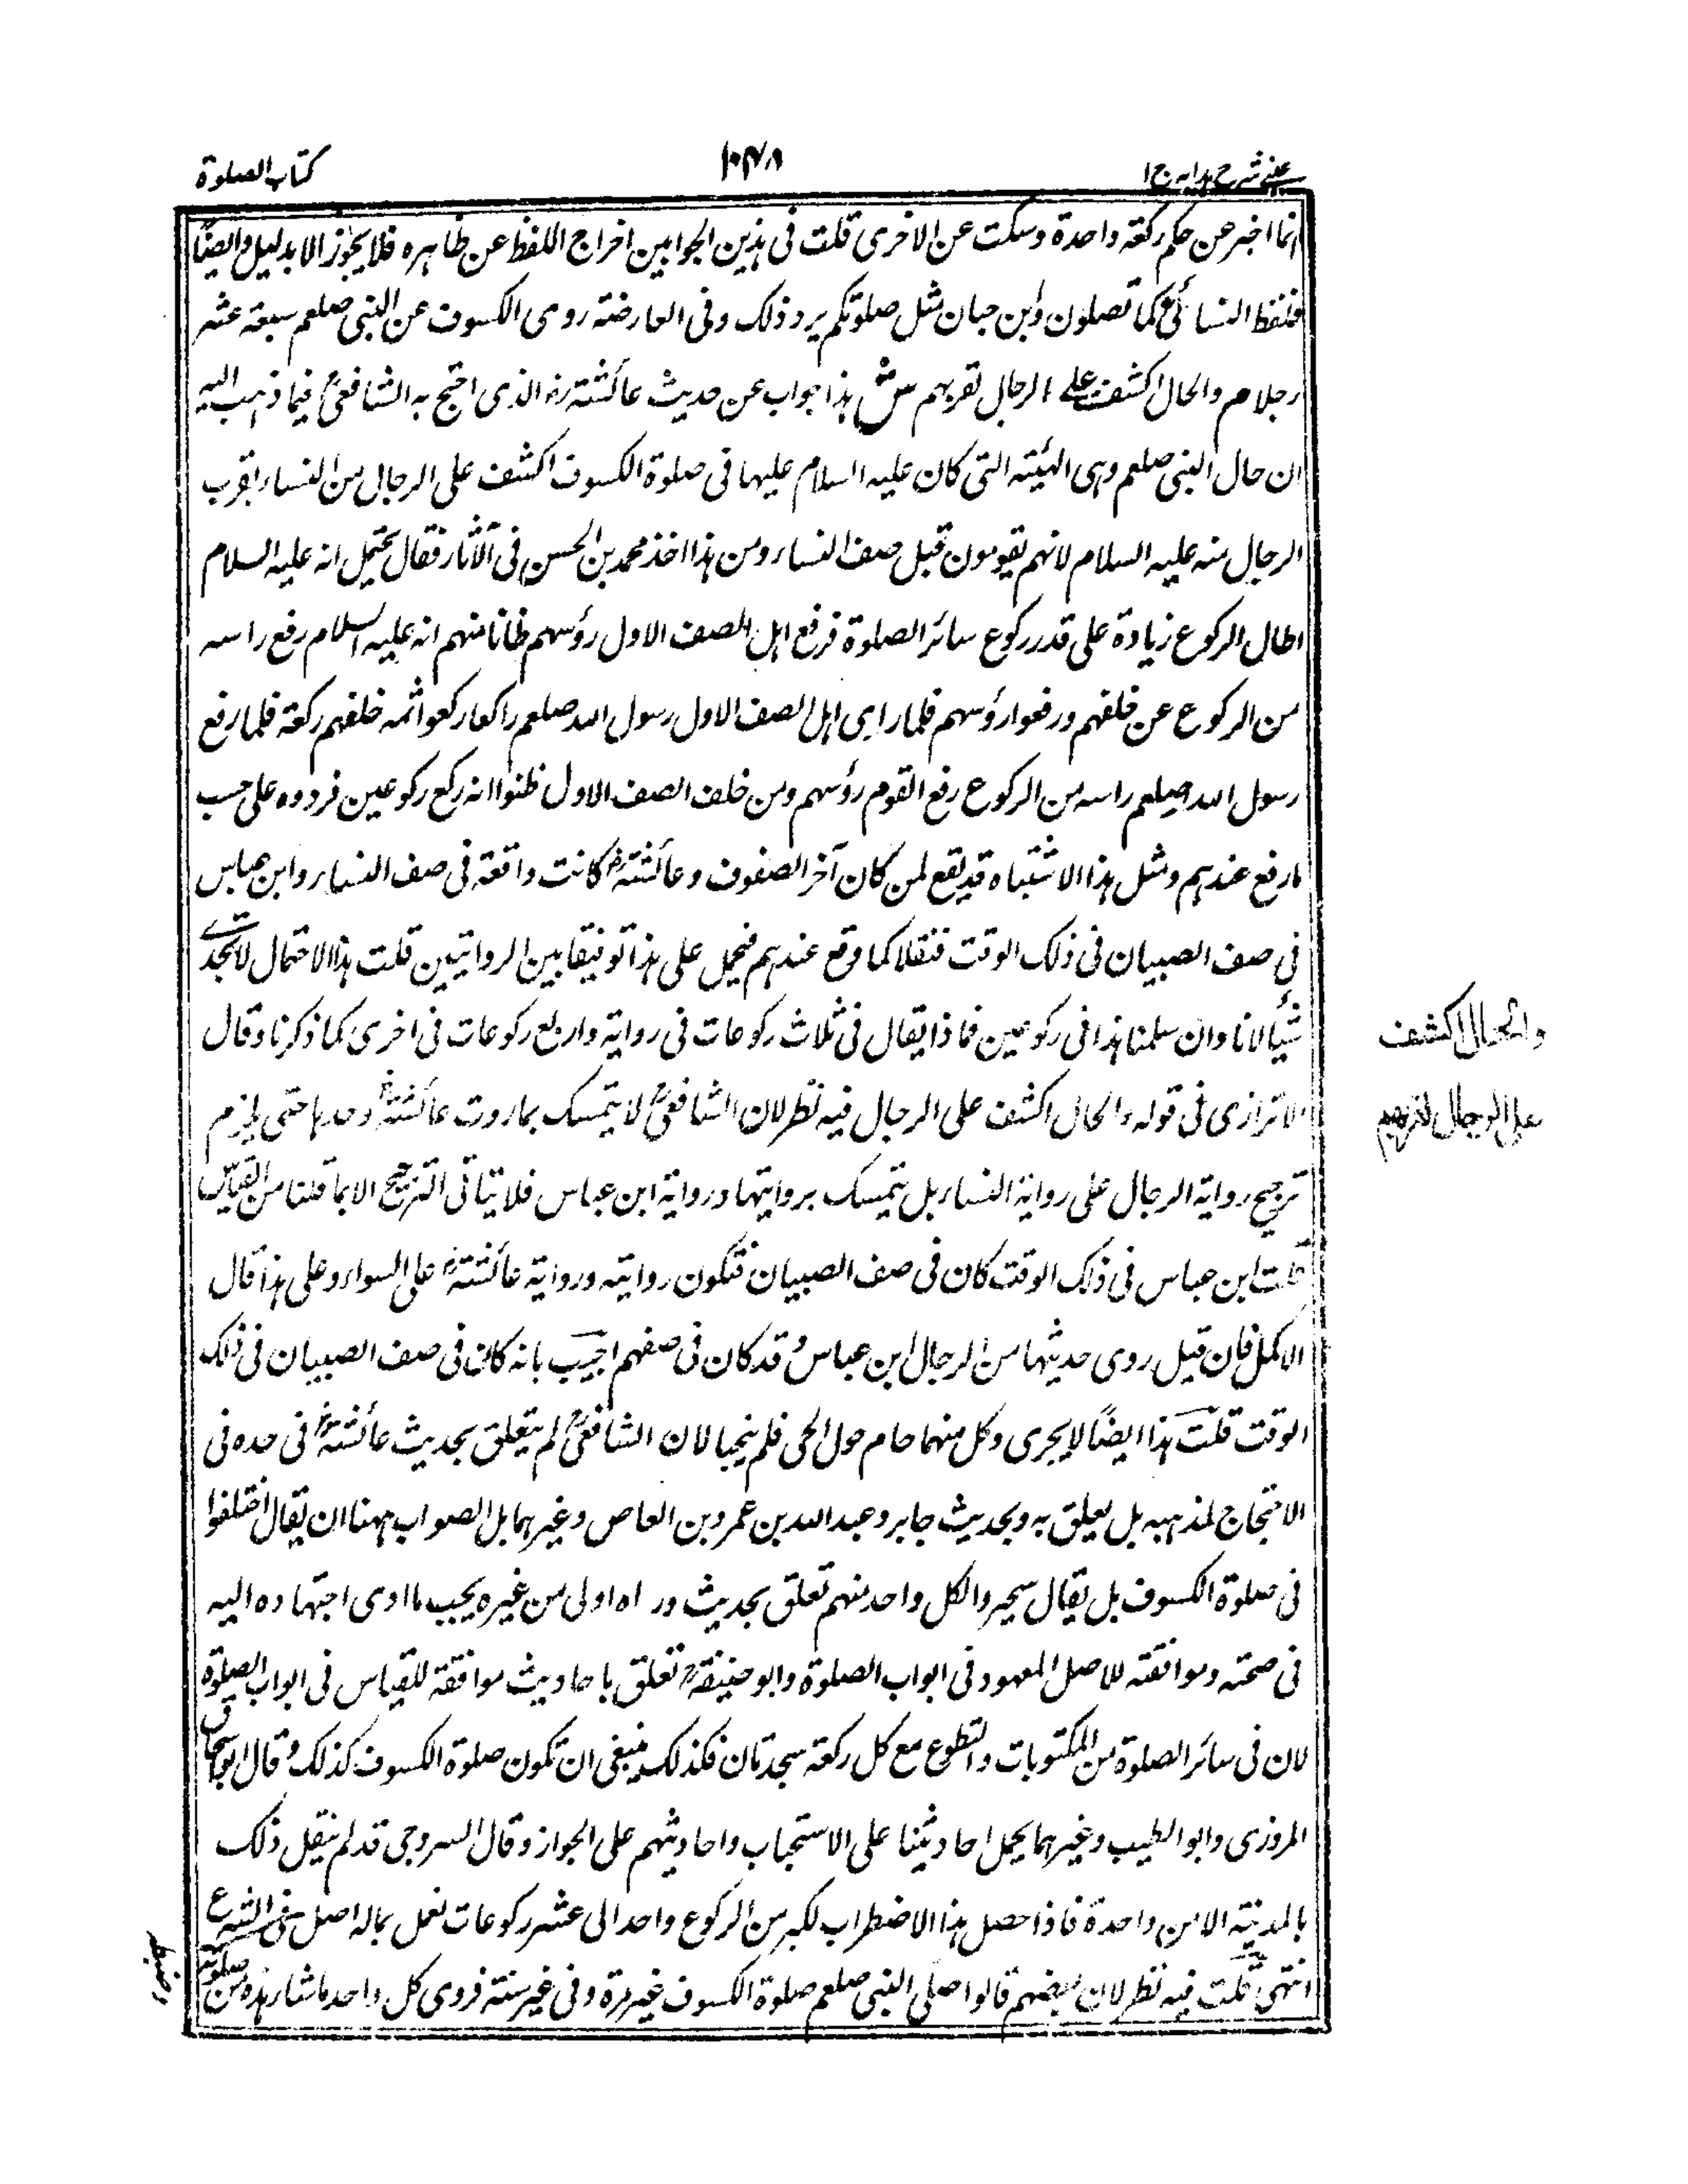 عینی شرح ہدایہ ج ۱
۱۰۴۸
کتاب الصلوة
انما اخبر عن حکم رکعة واحدة وسکت عن الاخری قلت فی ہذین الجوابین اخراج اللفظ عن ظاہرہ فلا یجوز الا بدلیل وایضًا
فلفظ النسائی کما تصلون وابن حبان مثل صلوتکم یرد ذلک وفی العارضة روی الکسوف عن النبی صلعم سبعة عشر
رجلا م والحال اکشف علی الرجال لقربہم ش ہذا جواب عن حدیث عائشة رض الذی احتج بہ الشافعی فیما ذہب الیہ
ان حال النبی صلعم وہی الہیئة التی کان علیہ السلام علیہا فی صلوة الکسوف اکشف علی الرجال من النساء لقرب
الرجال منہ علیہ السلام لانہم یقومون قبل صف النساء ومن ہذا اخذ محمد بن الحسن فی الآثار فقال یحتمل انہ علیہ السلام
اطال الرکوع زیادة علی قدر رکوع سائر الصلوة فرفع اہل الصف الاول رؤسہم ظانا منہم انہ علیہ السلام رفع راسہ
من الرکوع عن خلفہم ورفعوا رؤسہم فلما رای اہل الصف الاول رسول اللہ صلعم راکعا رکعوا ثمہ خلفہم رکعة فلما رفع
رسول اللہ صلعم راسہ من الرکوع رفع القوم رؤسہم ومن خلف الصف الاول ظنوا انہ رکع رکوعین فردوہ علی حسب
ما رفع عندہم ومثل ہذا الاشتباہ قد یقع لمن کان آخر الصفوف وعائشة رض کانت واقعة فی صف النساء وابن عباس
فی صف الصبیان فی ذلک الوقت فنقلا کما وقع عندہم فیحمل علی ہذا توفیقا بین الروایتین قلت ہذا الاحتمال لا یجدی
شیأ لانا وان سلمنا ہذا فی رکوعین فماذا یقال فی ثلاث رکوعات فی روایة واربع رکوعات فی اخری کما ذکرنا وقال
الاترازی فی قولہ والحال اکشف علی الرجال فیہ نظر لان الشافعی لا یتمسک بما روت عائشة وحدہا حتی یلزم
ترجیح روایة الرجال علی روایة النساء بل یتمسک بروایتہا وروایة ابن عباس فلا یتاتی الترجیح الا بما قلنا من القیاس
قلت ابن عباس فی ذلک الوقت کان فی صف الصبیان فتکون روایتہ وروایة عائشة علی السواء وعلی ہذا قال
الاکمل فان قیل روی حدیثہا من الرجال ابن عباس وقد کان فی صفہم اجیب بانہ کان فی صف الصبیان فی ذلک
الوقت قلت ہذا ایضًا لا یجری وکل منہما حام حول الحمی فلم ینجیا لان الشافعی لم یتعلق بحدیث عائشة فی حدہ فی
الاحتجاج لمذہبہ بل یعلق بہ وبحدیث جابر وعبد اللہ بن عمرو بن العاص وغیرہما بل الصواب ہہنا ان یقال اختلفوا
فی صلوة الکسوف بل یقال والکل واحد منہم تعلق بحدیث ور اہ اولی من غیرہ یجب ما ادی اجتہادہ الیہ
فی صحتہ وموافقتہ للاصل المعہود فی ابواب الصلوة وابو حنیفة تعلق باحادیث موافقة للقیاس فی ابواب الصلوة
لان فی سائر الصلوة من المکتوبات والتطوع مع کل رکعة سجدتان فکذلک ینبغی ان تکون صلوة الکسوف کذلک وقال ابو اسحاق
المروزی وابو الطیب وغیرہما یحمل احادیثنا علی الاستحباب واحادیثہم علی الجواز وقال السروجی قد لم ینقل ذلک
بالمدینة الا من واحدة فاذا حصل ہذا الاضطراب من الرکوع واحد الی عشر رکوعات نعمل بمالہ اصل فی الشرع
انتہی قلت فیہ نظر لان بعضہم قالوا صلی النبی صلعم صلوة الکسوف غیر مرة وفی غیر سنة فروی کل واحد ما شاہدہ من صلوتہ
والحال اکشف
علی الرجال لقربہم